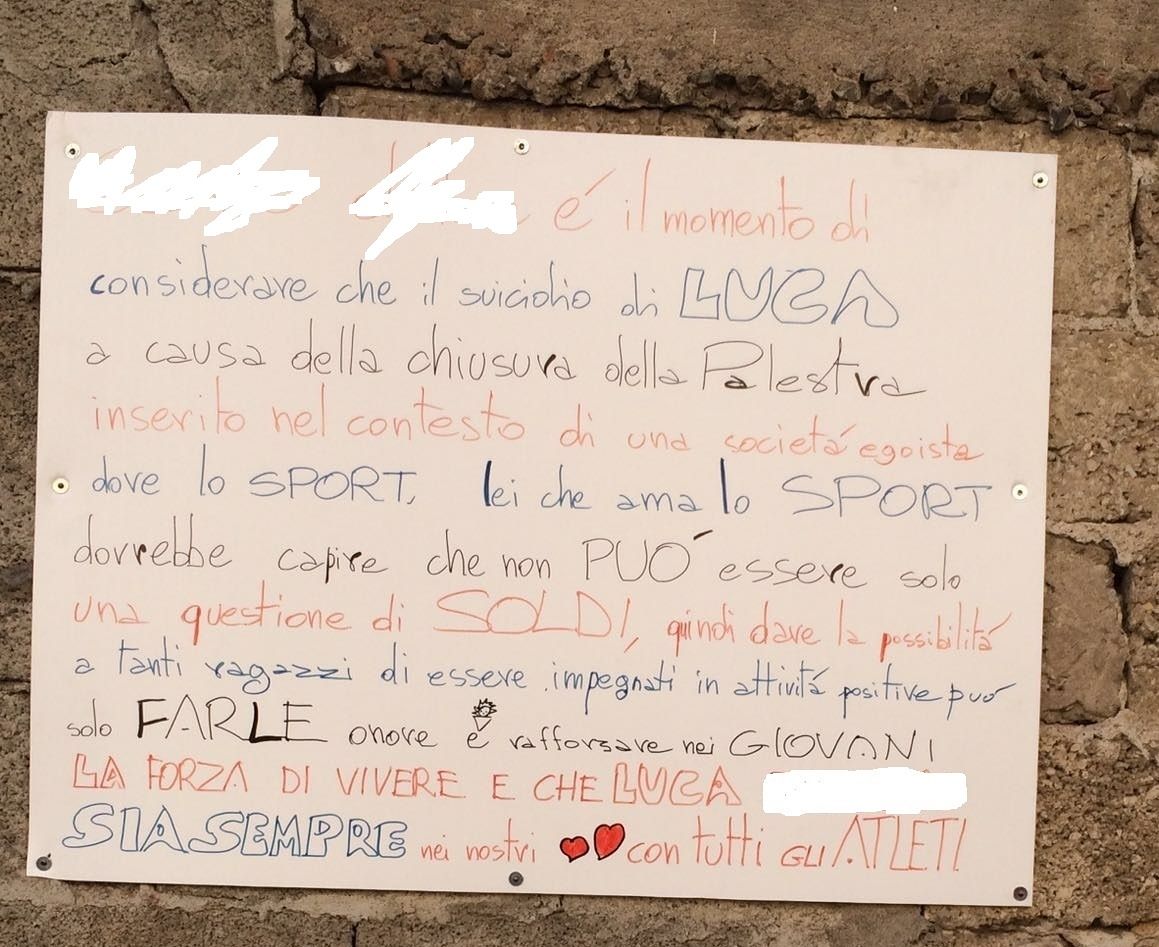 é il momento di
considerare che il suicidio di LUCA
a causa della chiusura della Palestra
inserito nel contesto di una societá egoista
dove lo SPORT, lei che ama lo SPORT
dovrebbe capire che non PUÓ essere solo
una questione di SOLDI, quindi dare la possibilitá
a tanti ragazzi di essere impegnati in attivitá positive puó
solo FARLE onore é rafforsare nei GIOVANI
LA FORZA DI VIVERE E CHE LUCA
SIA SEMPRE nei nostri con tutti GLI ATLETI